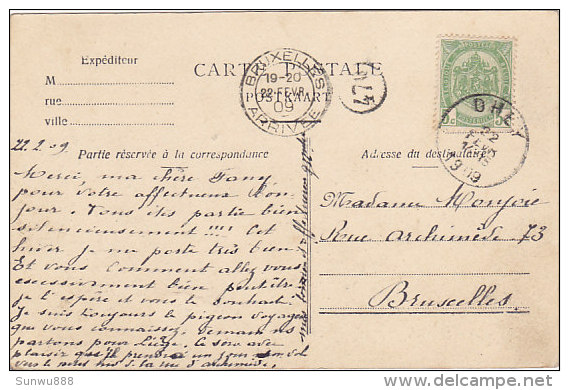 Expéditeur
M
rue
ville
CARTE POSTALE
POSTKAART
BRUXELLES
19-20
22 FEVR.
09
ARRIVÉE
DHEY
22
1909
5c
22.2.09
Partie réservée à la correspondance
Adresse du destinataire
Merci ma chère Fany
pour votre affectueux Bon
jour. Vous êts partie bien
silencieusement !!! Cet
hiver je me porte très bien
Et vous comment allez vous
excessivement bien peutêtre
je l'espère et vous le souhait.
Je suis toujours le pigeon voyageur
que vous connaissez. Demain ns
partons pour Liège. Le soir avec
plaisir qu'il prendrai un jour son vol
vers le
de la rue d'archimède.
Madame Monjoie
Rue Archimède 73
Bruxelles.
Sunwu888
delcampe.net